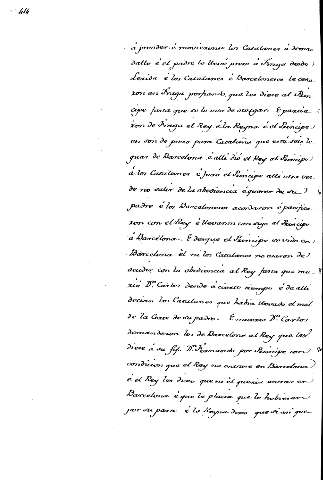 á prender é movieronse los Catalanes á deman
dallo é el padre lo llevó preso á Fraga desde
Lerida é los Catalanes é Barceloneses le cerca
ron en Fraga porfiando que les diese al Prin
cipe fasta que se lo uvo de otorgar. E partie
ron de Fraga el Rey é la Reyna é el Principe
en son de para Cataluña que está seis le
guas de Barcelona é alli dió el Rey el Principe
á los Catalanes é juró el Principe alli otra vez
de no salir de la obediencia é querer de su
padre é los Barceloneses acordaron é
ron con el Rey é llevaron consigo al Principe
á Barcelona. E desque el Principe se vido en
Barcelona él ni los Catalanes no curaron de
acudir con la obediencia al Rey fasta que mu
rió Dn. Carlos desde á cierto tiempo é de alli
decian los Catalanes que habia llevado el mal
de la Casa de su padre. E muerto Dn. Carlos
demandaron los de Barcelona al Rey que les
diese á su fijo Dn. Fernando por Principe con
condicion que el Rey no entrase en Barcelona
é el Rey les dixo que no él queria entrar en
Barcelona é que le placia que lo hubiesen
por su parte é la Reyna dixo que si asi que